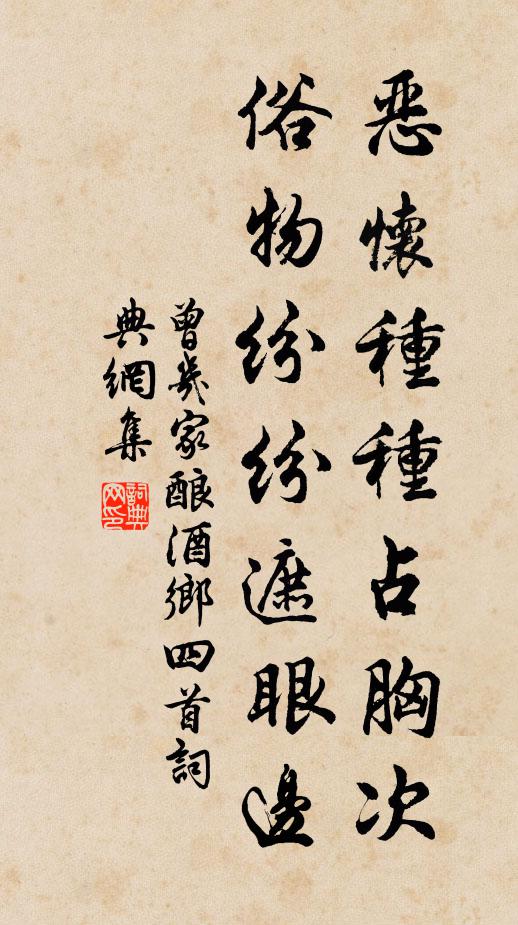 恶懷種種占胸次
俗物紛紛遮眼邊
曾幾家酿酒鄉四首詞
典網集
詞典网印